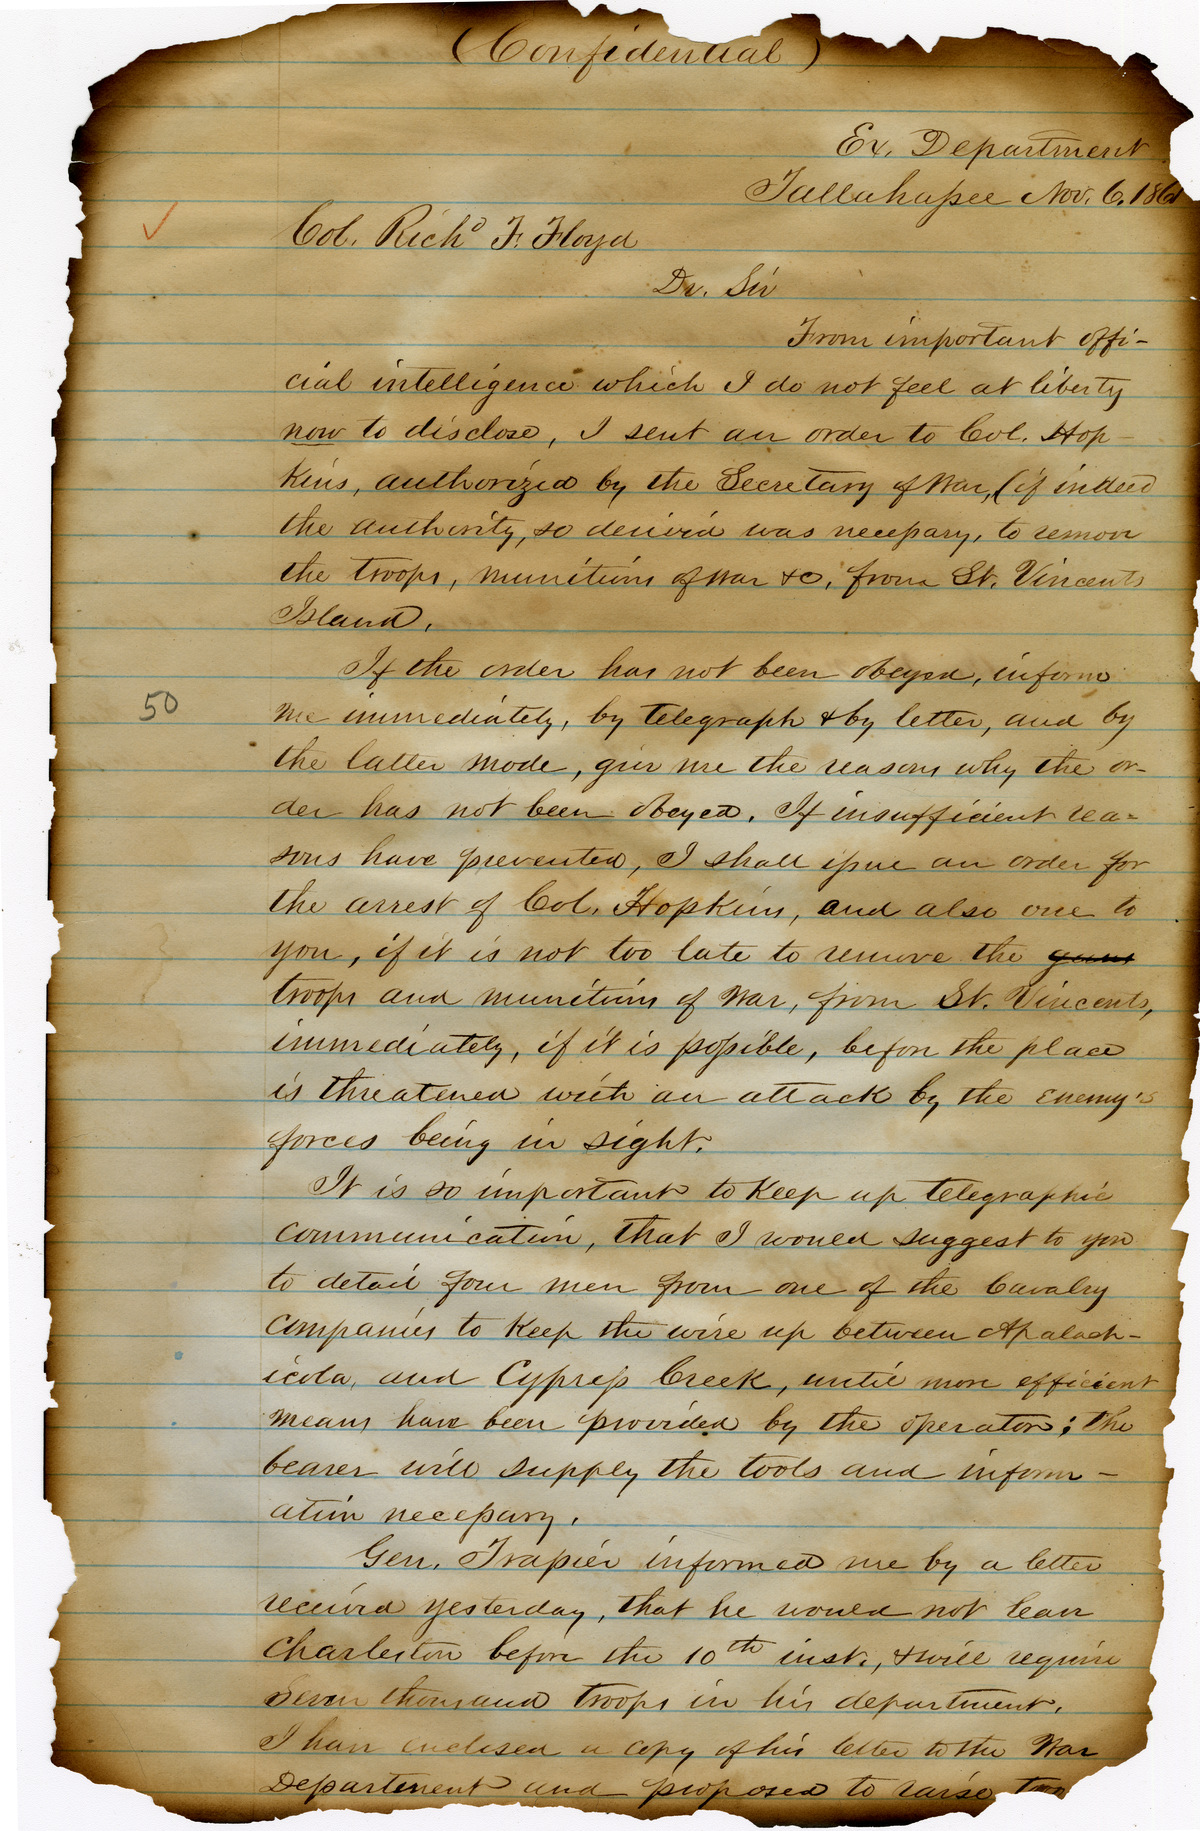 (Confidential)
Ex. Department
Tallahassee Nov. 6. 1861
Col. Richd F. Floyd
Dr. Sir
From important offi-
cial intelligence which I do not feel at liberty
now to disclose, I sent an order to Col. Hop-
kins, authorized by the Secretary of War, (if indeed
the authority, so derived was necessary, to remove
the troops, munitions of war &c. from St. Vincents
Island.
If the order has not been obeyed, inform
50
me immediately, by telegraph & by letter, and by
the latter mode, give me the reasons why the or-
der has not been obeyed. If insufficient rea-
sons have prevented, I shall issue an order for
the arrest of Col. Hopkins, and also one to
you, if it is not too late to remove the guns
troops and munitions of War, from St. Vincents,
immediately, if it is possible, before the place
is threatened with an attack by the enemy's
forces being in sight.
It is so important to keep up telegraphic
communication, that I would suggest to you
to detail four men from one of the Cavalry
Companies to keep the wire up between Apalach-
icola, and Cypress Creek, until more efficient
means have been provided by the operator; the
bearer will supply the tools and inform-
ation necessary.
Gen. Trapier informed me by a letter
received yesterday, that he would not leave
Charleston before the 10th inst., & will require
Seven thousand troops in his department.
I have enclosed a copy of his letter to the War
Department and proposed to raise two